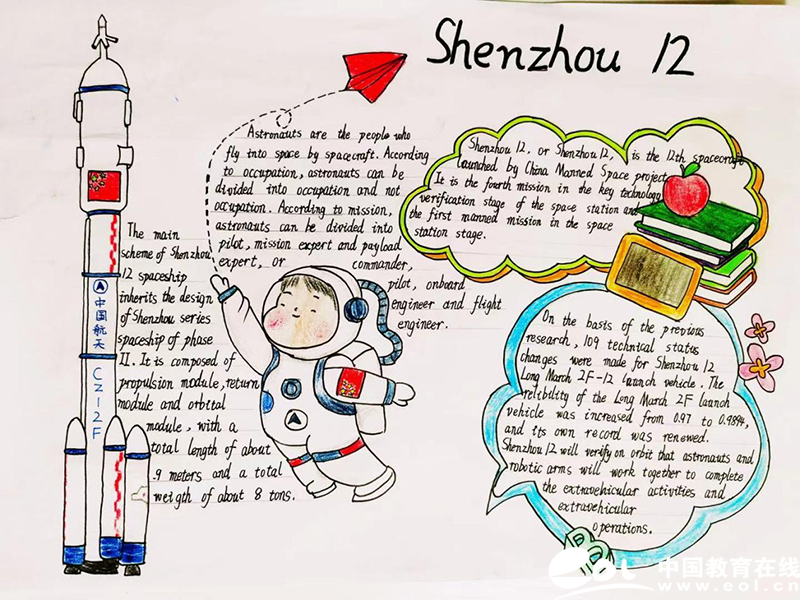 Shenzhou 12
Astronauts are the people who
fly into space by spacecraft. According
to occupation, astronauts can be
divided into occupation and not
occupation. According to mission,
astronauts can be divided into
pilot, mission expert and payload
expert, or commander,
pilot, onboard
engineer and flight
engineer.
Shenzhou 12, or Shenzhou 12, is the 12th spacecraft
launched by China Manned Space project.
It is the fourth mission in the key technology
verification stage of the space station and
the first manned mission in the space
station stage.
The main
scheme of Shenzhou
12 spaceship
inherits the design
of Shenzhou series
spaceship of phase
II. It is composed of
propulsion module, return
module and orbital
module, with a
total length of about
9 meters and a total
weigth of about 8 tons.
On the basis of the previous
research, 109 technical status
changes were made for Shenzhou 12
Long March 2F-12 launch vehicle. The
relibility of the Long March 2F launch
vehicle was increased from 0.97 to 0.9894,
and its own record was renewed.
Shenzhou 12 will verify on orbit that astronauts and
robotic arms will work together to complete
the extravehicular activities and
extravehicular
operations.
中国航天 CZ-2F
中国教育在线
www.eol.cn